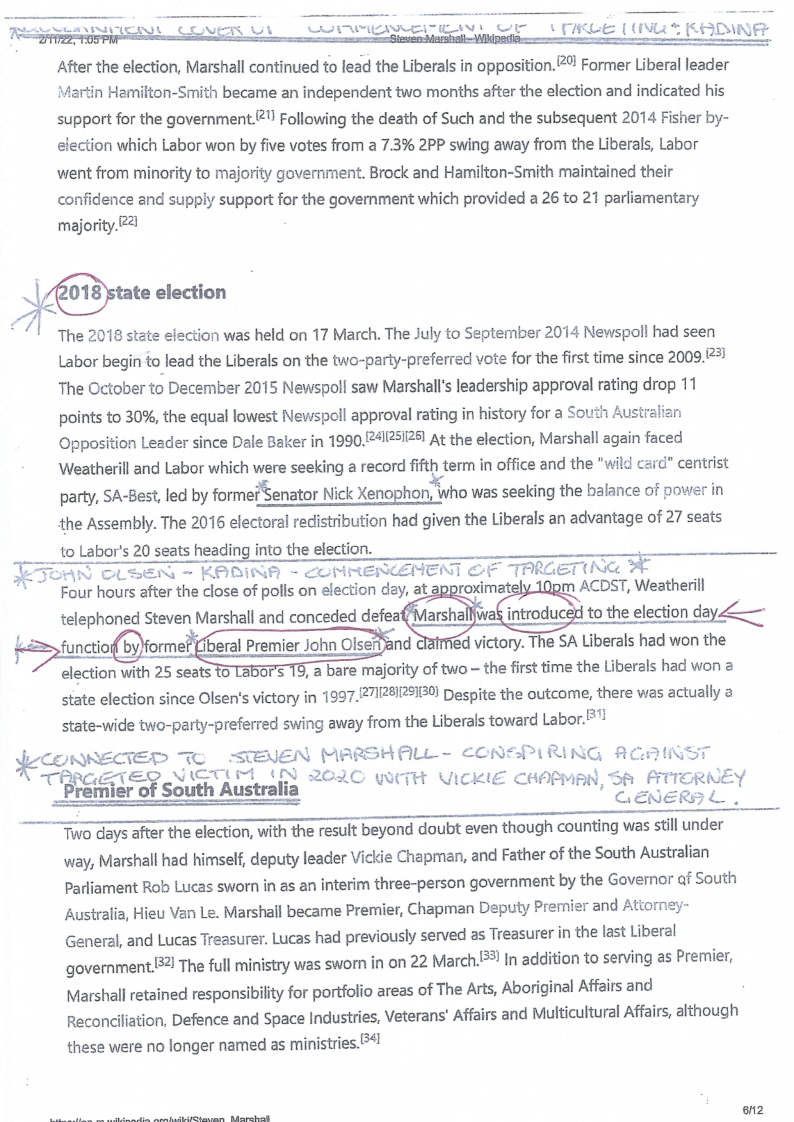 COVER UP COMMENCEMENT OF TARGETING: KADINA
2/11/22, 1:05 PM Steven Marshall - Wikipedia
After the election, Marshall continued to lead the Liberals in opposition.[20] Former Liberal leader
Martin Hamilton-Smith became an independent two months after the election and indicated his
support for the government.[21] Following the death of Such and the subsequent 2014 Fisher by-
election which Labor won by five votes from a 7.3% 2PP swing away from the Liberals, Labor
went from minority to majority government. Brock and Hamilton-Smith maintained their
confidence and supply support for the government which provided a 26 to 21 parliamentary
majority.[22]
2018 state election
The 2018 state election was held on 17 March. The July to September 2014 Newspoll had seen
Labor begin to lead the Liberals on the two-party-preferred vote for the first time since 2009.[23]
The October to December 2015 Newspoll saw Marshall's leadership approval rating drop 11
points to 30%, the equal lowest Newspoll approval rating in history for a South Australian
Opposition Leader since Dale Baker in 1990.[24][25][26] At the election, Marshall again faced
Weatherill and Labor which were seeking a record fifth term in office and the "wild card" centrist
party, SA-Best, led by former Senator Nick Xenophon, who was seeking the balance of power in
the Assembly. The 2016 electoral redistribution had given the Liberals an advantage of 27 seats
to Labor's 20 seats heading into the election.
* JOHN OLSEN - KADINA - COMMENCEMENT OF TARGETING *
Four hours after the close of polls on election day, at approximately 10pm ACDST, Weatherill
telephoned Steven Marshall and conceded defeat. Marshall was introduced to the election day
function by former Liberal Premier John Olsen and claimed victory. The SA Liberals had won the
election with 25 seats to Labor's 19, a bare majority of two – the first time the Liberals had won a
state election since Olsen's victory in 1997.[27][28][29][30] Despite the outcome, there was actually a
state-wide two-party-preferred swing away from the Liberals toward Labor.[31]
* CONNECTED TO STEVEN MARSHALL - CONSPIRING AGAINST
* TARGETED VICTIM IN 2020 WITH VICKIE CHAPMAN, SA ATTORNEY
GENERAL.
Premier of South Australia
Two days after the election, with the result beyond doubt even though counting was still under
way, Marshall had himself, deputy leader Vickie Chapman, and Father of the South Australian
Parliament Rob Lucas sworn in as an interim three-person government by the Governor of South
Australia, Hieu Van Le. Marshall became Premier, Chapman Deputy Premier and Attorney-
General, and Lucas Treasurer. Lucas had previously served as Treasurer in the last Liberal
government.[32] The full ministry was sworn in on 22 March.[33] In addition to serving as Premier,
Marshall retained responsibility for portfolio areas of The Arts, Aboriginal Affairs and
Reconciliation, Defence and Space Industries, Veterans' Affairs and Multicultural Affairs, although
these were no longer named as ministries.[34]
https://en.m.wikipedia.org/wiki/Steven_Marshall 6/12